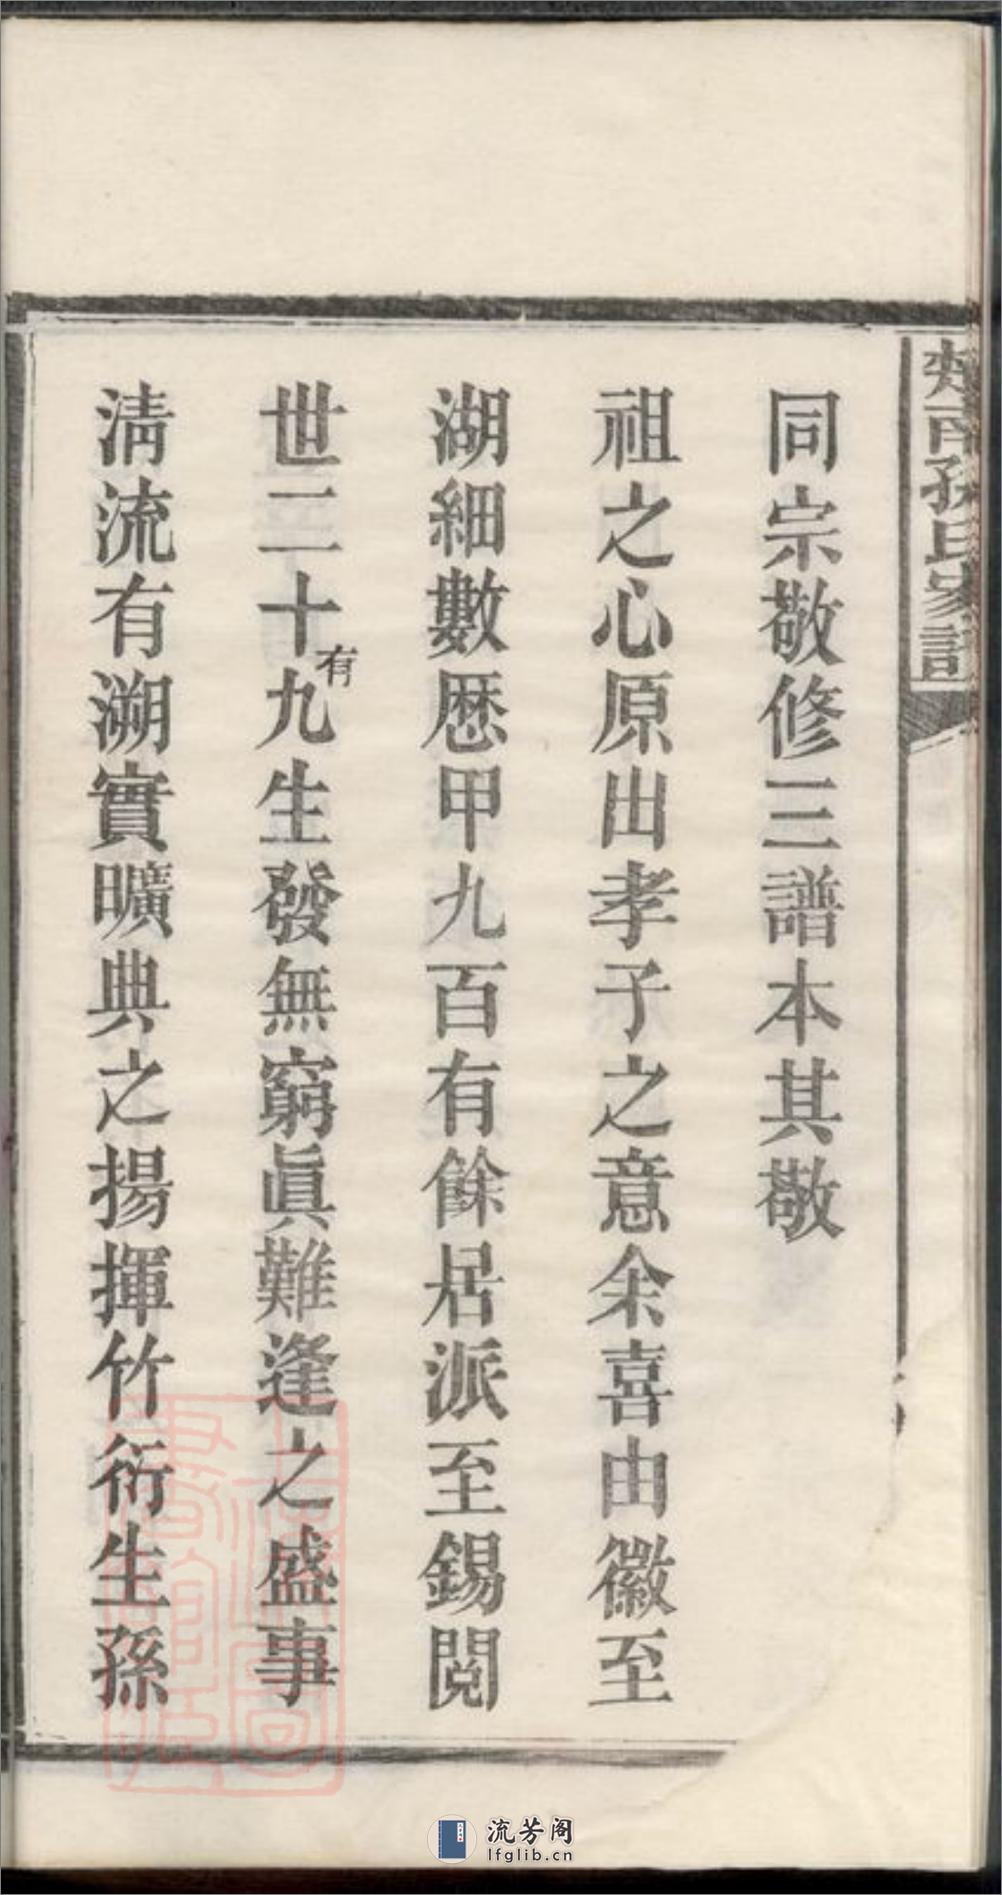 同宗敬修三譜本其敬
祖之心原出孝子之意余喜由徽至
湖細數歷甲九百有餘居派至錫閱
世二十有九生發無窮眞難逢之盛事
淸流有溯實曠典之揚揮竹衍生孫
孫氏家譜
流芳阁
lfglib.cn